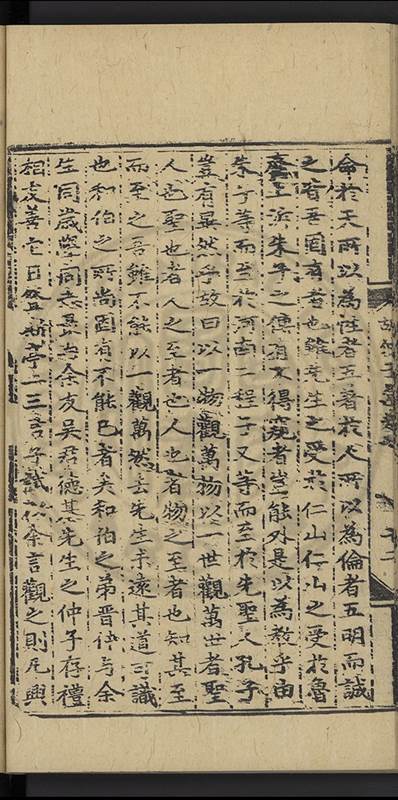 命於天所以為性者五著於人所以為倫者五明而誠
之者吾固有者也雖先生之受於仁山仁山之受於魯
齋上泝朱子之傳有不得竟者豈能外是以為教乎由
朱子等而至於河南二程子又等而至於先聖人孔子
豈有異然乎故曰以一物觀萬物以一世觀萬世者聖
人也聖也者人之至者也人也者物之至者也知其至
而至之吾雖不能以一觀萬然去先生未遠其道可識
也和伯之所尚固有不能已者矣和伯之弟晉仲与余
生同歲學同志嘗与余友吳君德基先生之仲子存禮
相友善它日登斯亭二三君子試以余言觀之則凡興